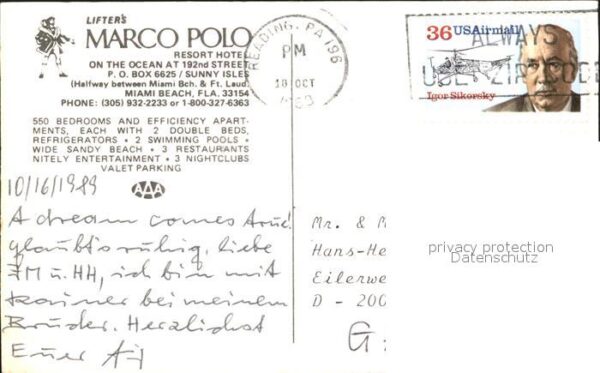 LIFTER'S
MARCO POLO
RESORT HOTEL
ON THE OCEAN AT 192nd STREET
P. O. BOX 6625 / SUNNY ISLES
(Halfway between Miami Bch. & Ft. Laud.)
MIAMI BEACH, FLA. 33154
PHONE: (305) 932-2233 or 1-800-327-6363
550 BEDROOMS AND EFFICIENCY APART-
MENTS, EACH WITH 2 DOUBLE BEDS,
REFRIGERATORS • 2 SWIMMING POOLS •
WIDE SANDY BEACH • 3 RESTAURANTS
NITELY ENTERTAINMENT • 3 NIGHTCLUBS
VALET PARKING
AAA
10/16/1989
A dream comes true!
glaubt's ruhig, liebe
JM u. HH, ich bin mit
Rainer bei meinem
Bruder. Herzlichst
Euer
READING, PA 196
PM
18 OCT
ALWAYS
USE ZIP CODE
36 USAirmail
Igor Sikorsky
Mr. & M
Hans-He
Eilerwe
D - 200
privacy protection
Datenschutz